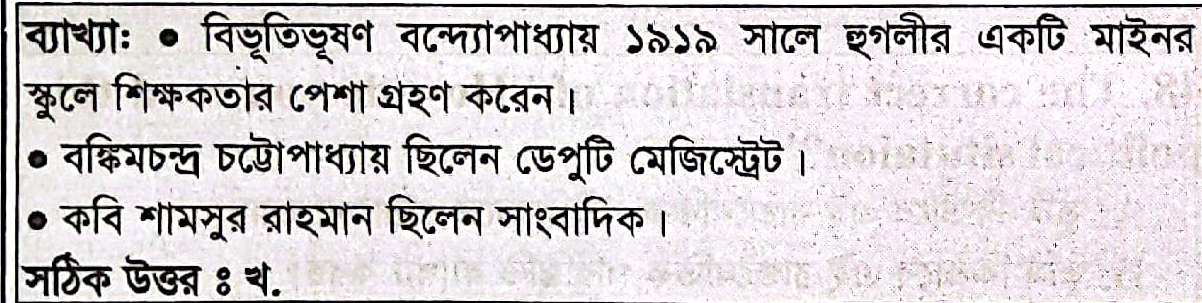 ব্যাখ্যা: ● বিভূতিভূষণ বন্দ্যোপাধ্যায় ১৯১৯ সালে হুগলীর একটি মাইনর
স্কুলে শিক্ষকতার পেশা গ্রহণ করেন।
● বঙ্কিমচন্দ্র চট্টোপাধ্যায় ছিলেন ডেপুটি মেজিস্ট্রেট।
● কবি শামসুর রাহমান ছিলেন সাংবাদিক।
সঠিক উত্তর ঃ খ.